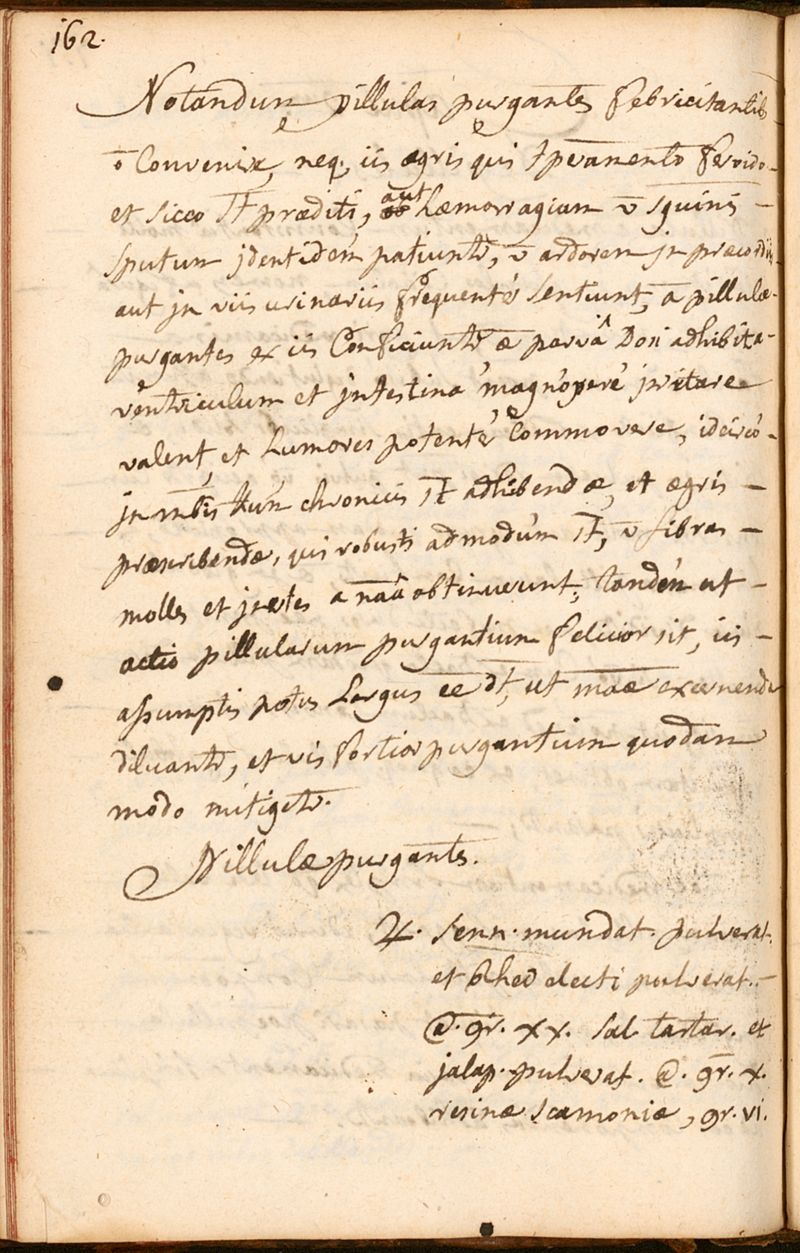 162.
Notandum pillulas purgantes febricitantib
ō Convenire, neq. iis ægris qui tperamento fervido
et sicco st præditi, aut hæmorragiam v̄ sguinis
sputum jdentidem patiuntr, v̄ ardorem jn præcordiis
aut jn viis urinariis frequenter sentiunt, a pillulæ
purgantes ex iis Conficiuntr æ parvâ Dosi adhibita
ventriculum et jntestina magnopere jrritare
valent, et humores potenter Commovere, idcirco
jn mbis tun chronicis st adhibendæ, et ægris
præscribendæ, qui robusti admodum st, v̄ fibras
molles et jnertes a nāa obtinuerunt, tandem ut
actio pillularum purgantium felicior sit, iis
assumptis potus largus ee dt, ut māæ excernendæ
diluantr, et vis fortior purgantium quodam
modo mitigetr.
Pillulæ purgantes.
♃. senn. mundat. pulverat.
et Rheo electi pulverat.
@. gr. xx. sal tartar. et
jalap. pulverat. @. gr. x.
resinæ scamoniæ, gr. vi.